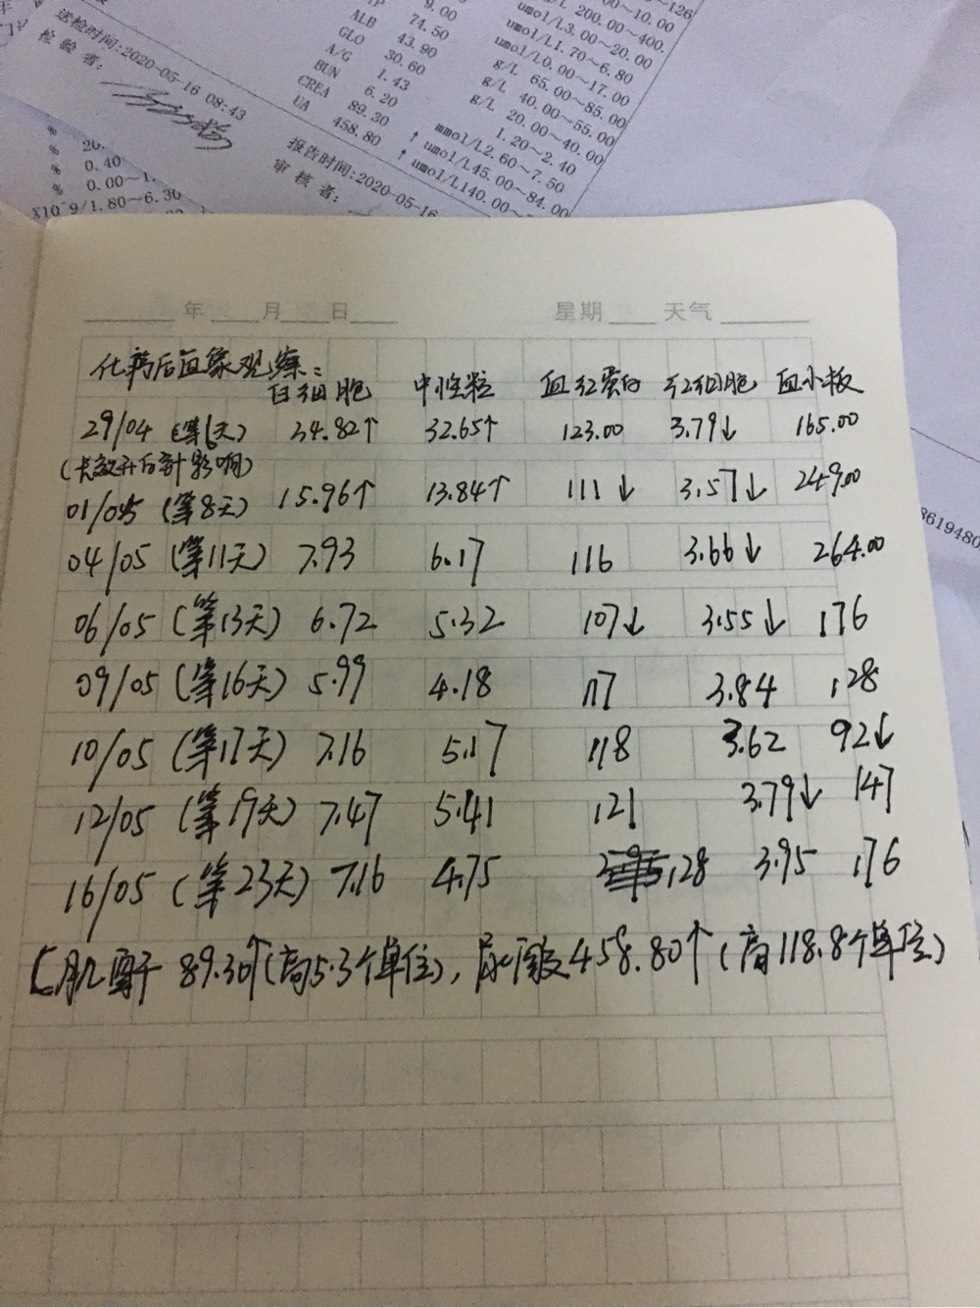 126
9.00
200.00~400.
ALB 74.50 umol/L3.00~20.00
GLO 43.90 umol/L1.70~6.80
A/G 30.60 umol/L0.00~17.00
BUN 1.43 g/L 65.00~85.00
CREA 6.20 g/L 40.00~55.00
UA 89.30 ↑ g/L 20.00~40.00
458.80 ↑ 1.20~2.40
mmol/L2.60~7.50
umol/L45.00~84.00
umol/L140.00~
送检时间:2020-05-16 08:43
检 验 者:
报告时间:2020-05-16
审 核 者:
% 20.
% 0.40
% 0.00~1.
X10^9/1.80~6.30
8619480
年 月 日 星期 天气
化药后血象观察:
白细胞 中性粒 血红蛋白 红细胞 血小板
29/04 (第6天) 34.82↑ 32.65↑ 123.00 3.79↓ 165.00
(长效升白针影响)
01/05 (第8天) 15.96↑ 13.84↑ 111↓ 3.57↓ 249.00
04/05 (第11天) 7.93 6.17 116 3.66↓ 264.00
06/05 (第13天) 6.72 5.32 107↓ 3.55↓ 176
09/05 (第16天) 5.99 4.18 117 3.84 128
10/05 (第17天) 7.16 5.17 118 3.62 92↓
12/05 (第19天) 7.47 5.41 121 3.79↓ 147
16/05 (第23天) 7.16 4.75 128 3.95 176
[肌酐 89.30↑(高5.3个单位), 尿酸458.80↑(高118.8个单位)